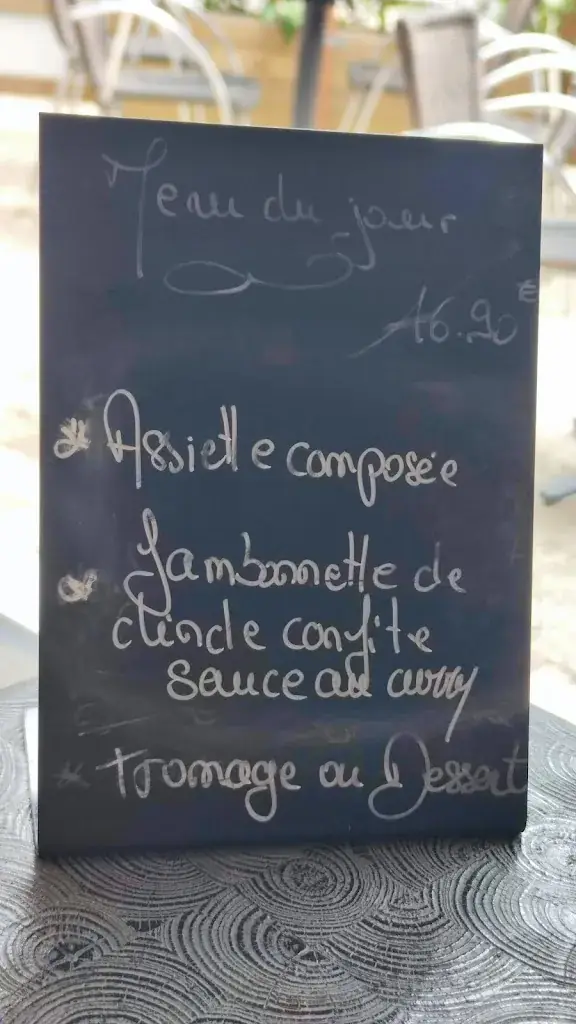 Menu du jour
16.90€
* Assiette composée
* Jambonnette de
dinde confite
sauce au curry
* Fromage ou Dessert